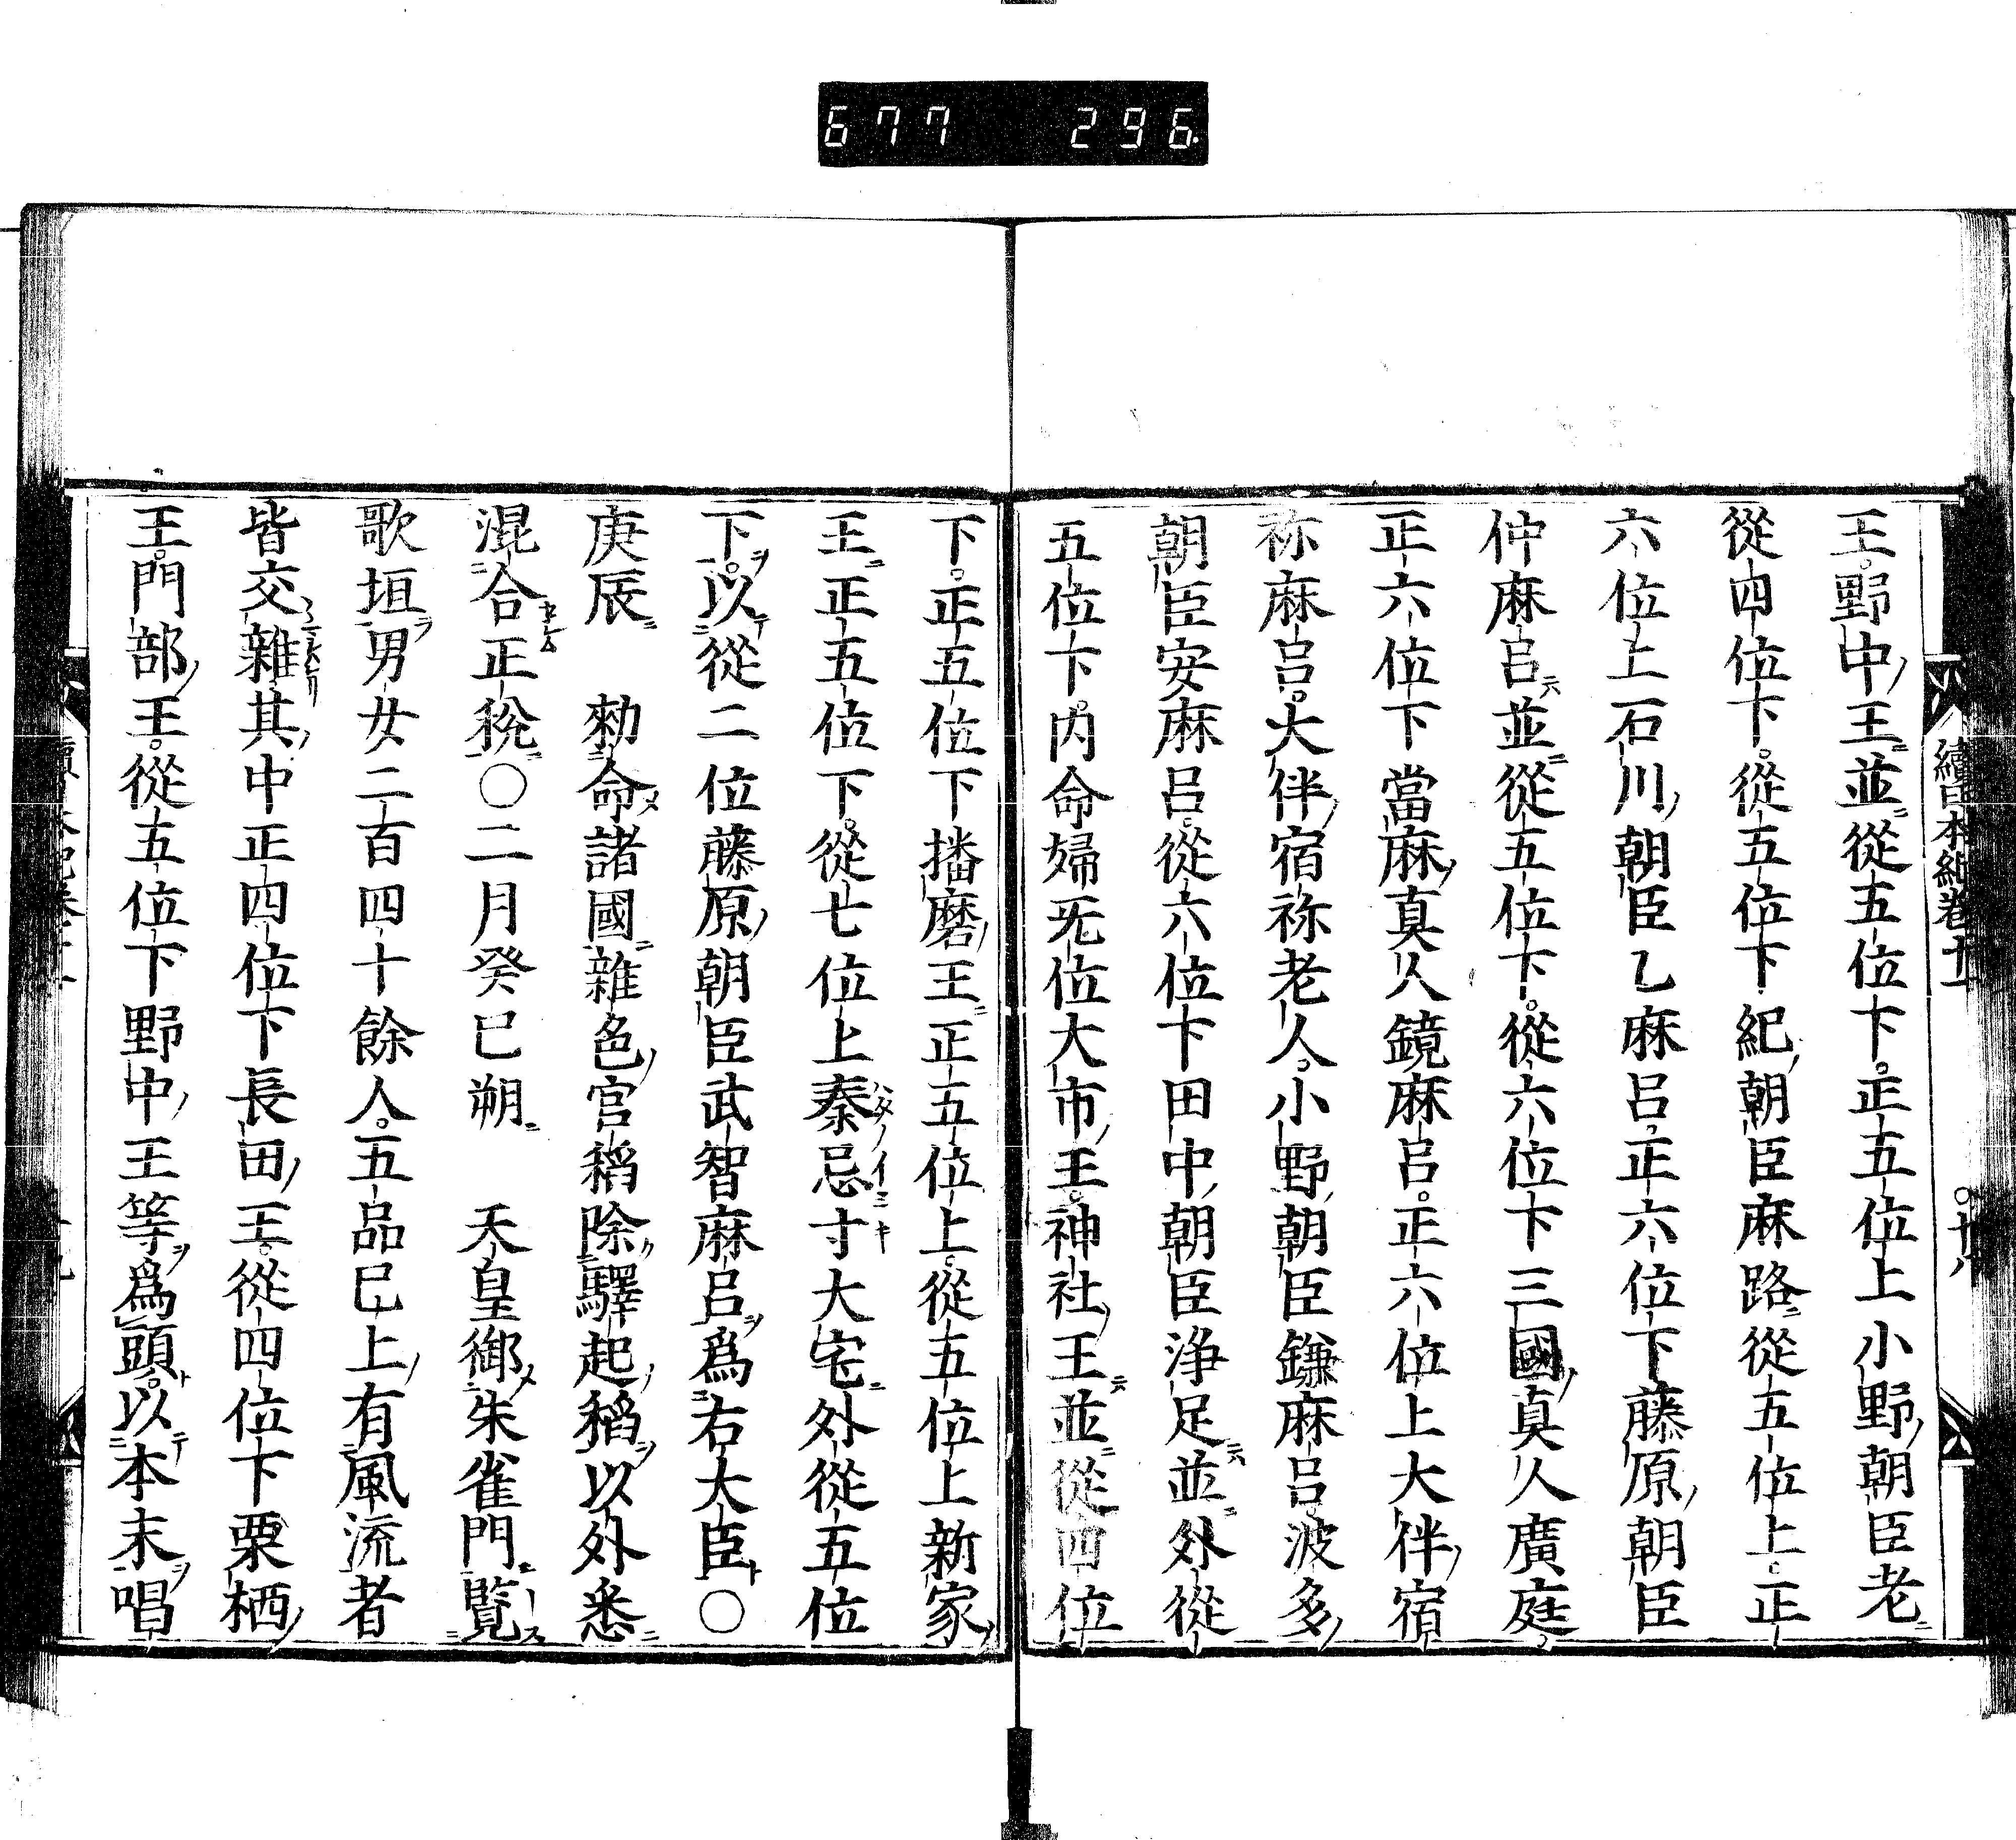 677 296
續日本紀卷十一 ○十八
王。野中王並從五位下。正五位上小野朝臣老
從四位下。從五位下紀朝臣麻路從五位上。正
六位上石川朝臣乙麻呂。正六位下藤原朝臣
仲麻呂並從五位下。從六位下三國真人廣庭。
正六位下當麻真人鏡麻呂。正六位上大伴宿
祢麻呂。大伴宿祢老人。小野朝臣鎌麻呂。波多
朝臣安麻呂。從六位下田中朝臣浄足並外從
五位下。内命婦旡位大市王。神社王並從四位
下。正五位下播磨王正五位上。從五位上新家
王正五位下。從七位上秦忌寸大宅外從五位
下。以從二位藤原朝臣武智麻呂爲右大臣○
庚辰 勑命諸國雜色官稻除驛起稻以外悉
混合正稅○二月癸巳朔 天皇御朱雀門覽
歌垣男女二百四十餘人。五品已上有風流者
皆交雜其中正四位下長田王。從四位下栗栖
王。門部王。從五位下野中王等爲頭。以本末唱